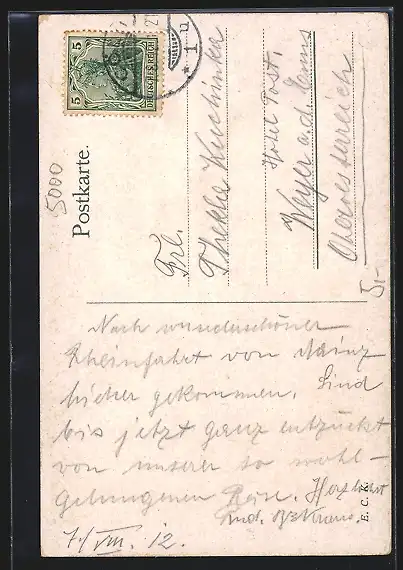 Postkarte.
5000
5 DEUTSCHES REICH 5
* 1 u
Frl.
Thekla Kuchinka
Hotel Post.
Weyer a. d. Enns
Oberoesterreich
5/-
Nach wunderschöner
Rheinfahrt von Mainz
hieher gekommen. Sind
bis jetzt ganz entzückt
von unserer so wohl-
gelungenen Reise. Herzlichst
7/VIII. 12.
E. C. K.